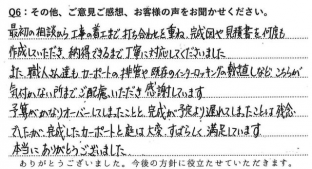 Q6：その他、ご意見ご感想、お客様の声をお聞かせください。
最初の相談から工事の着工まで打ち合わせを重ね、完成図や見積書も何度も
作成していただき、納得できるまで丁寧に対応してくださいました
また、職人さん達もカーポートの
既存のインターロッキングの
など、こちらが
気付かない所までご配慮いただき感謝しています
予算がかなりオーバーしてしまったことと、完成が予定より遅れてしまったことは残念
でしたが、完成したカーポートと庭は大変、すばらしく満足しています
本当にありがとうございました。
ありがとうございました。今後の方針に役立たせていただきます。